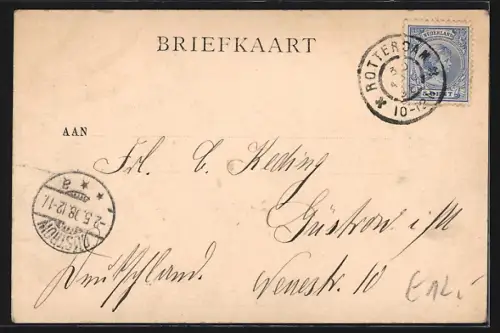 BRIEFKAART
NEDERLAND
5 CENT
ROTTERDAM
10-12
AAN
Frl. C. Keding
Güstrow i/M
Neuestr. 10
Deutschland.
GÜSTROW
2.5.98.12-1N.
a
E 12,-